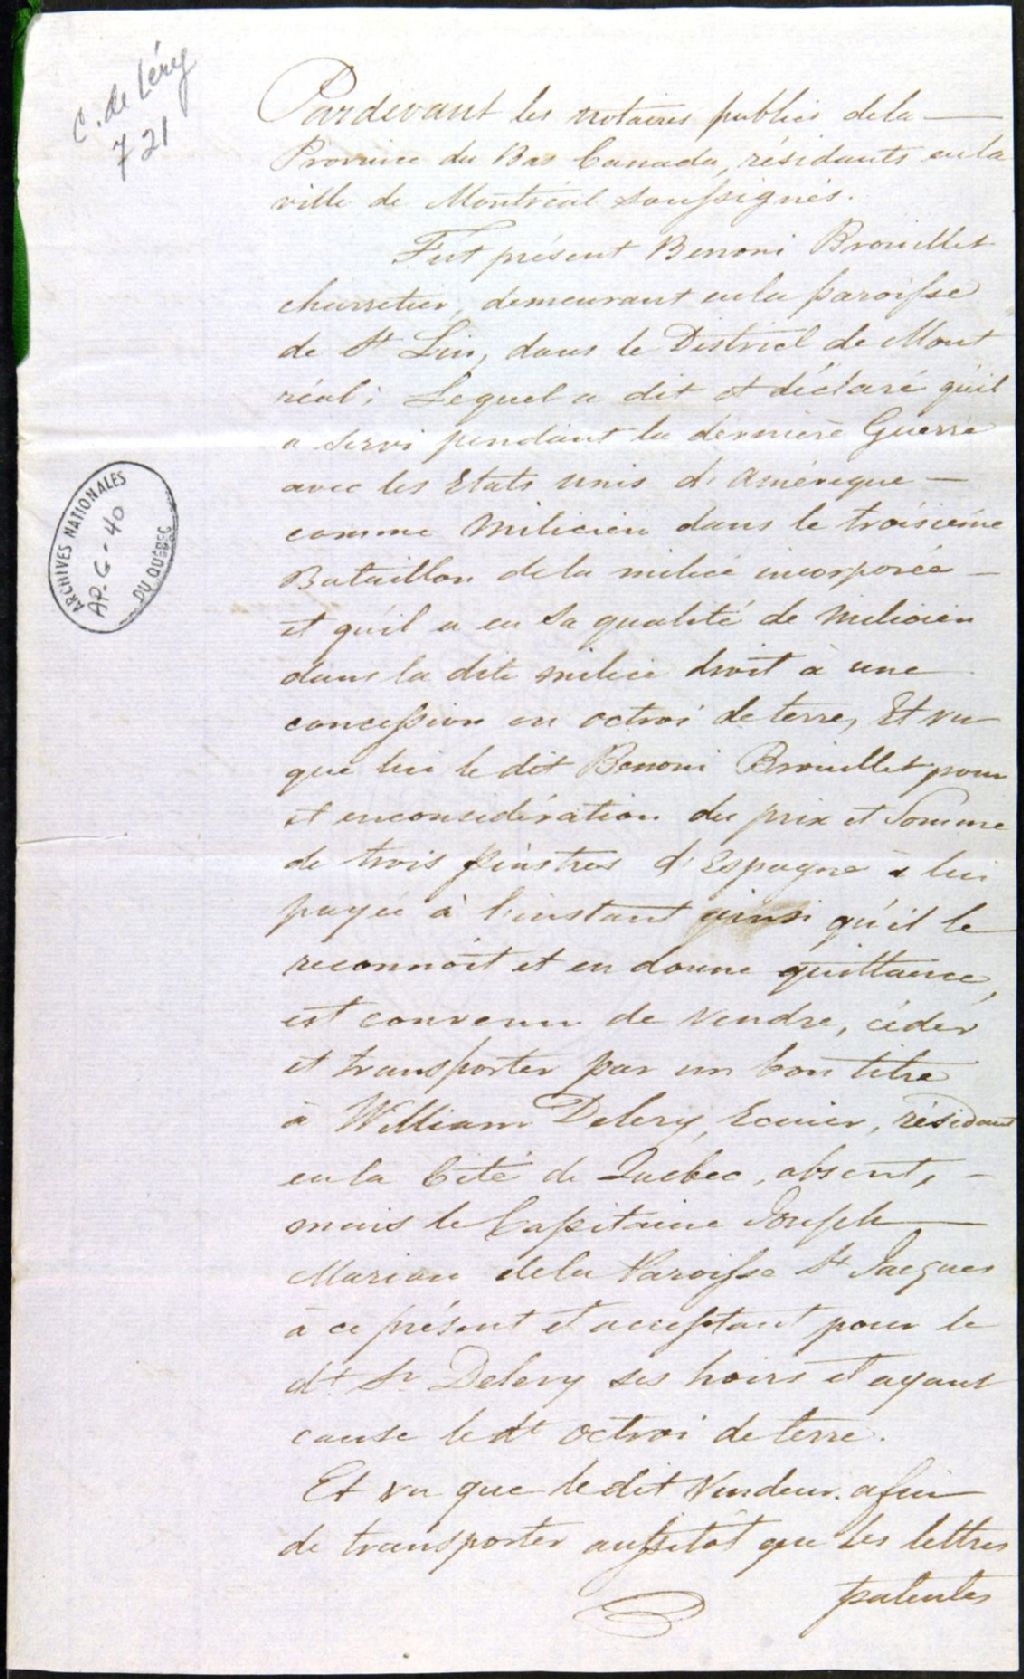 C. de Léry
721
Pardevant les notaires publics dela
Province du Bas Canada, résidants en la
ville de Montréal soussignés.
Fut présent Benoni Brouillet
charretier, demeurant en la paroisse
de St Lin, dans le District de Mont
réal; Lequel a dit et déclaré qu'il
a servi pendant la dernière Guerre
avec les Etats unis d'Amérique
comme Milicien dans le troisième
Bataillon de la milice incorporée
et qu'il a en sa qualité de Milicien
dans la dite milice droit à une
concession en octroi de terre, Et vu
que lui le dit Benoni Brouillet pour
et en considération du prix et Somme
de trois piastres d'Espagne à lui
payée à l'instant ainsi qu'il le
reconnoit et en donne quittance,
est convenu de vendre, céder
et transporter par un bon titre
à William Delery, Ecuier, résidant
en la Cité de Quebec, absent,
mais le Capitaine Joseph
Marion dela Paroisse St Jacques
à ce présent et acceptant pour le
dt Sr Delery ses hoirs et ayant
cause le dt octroi de terre.
Et vu que le dit Vendeur afin
de transporter aussitôt que les lettres
patentes
ARCHIVES NATIONALES
AP. G-40
DU QUÉBEC